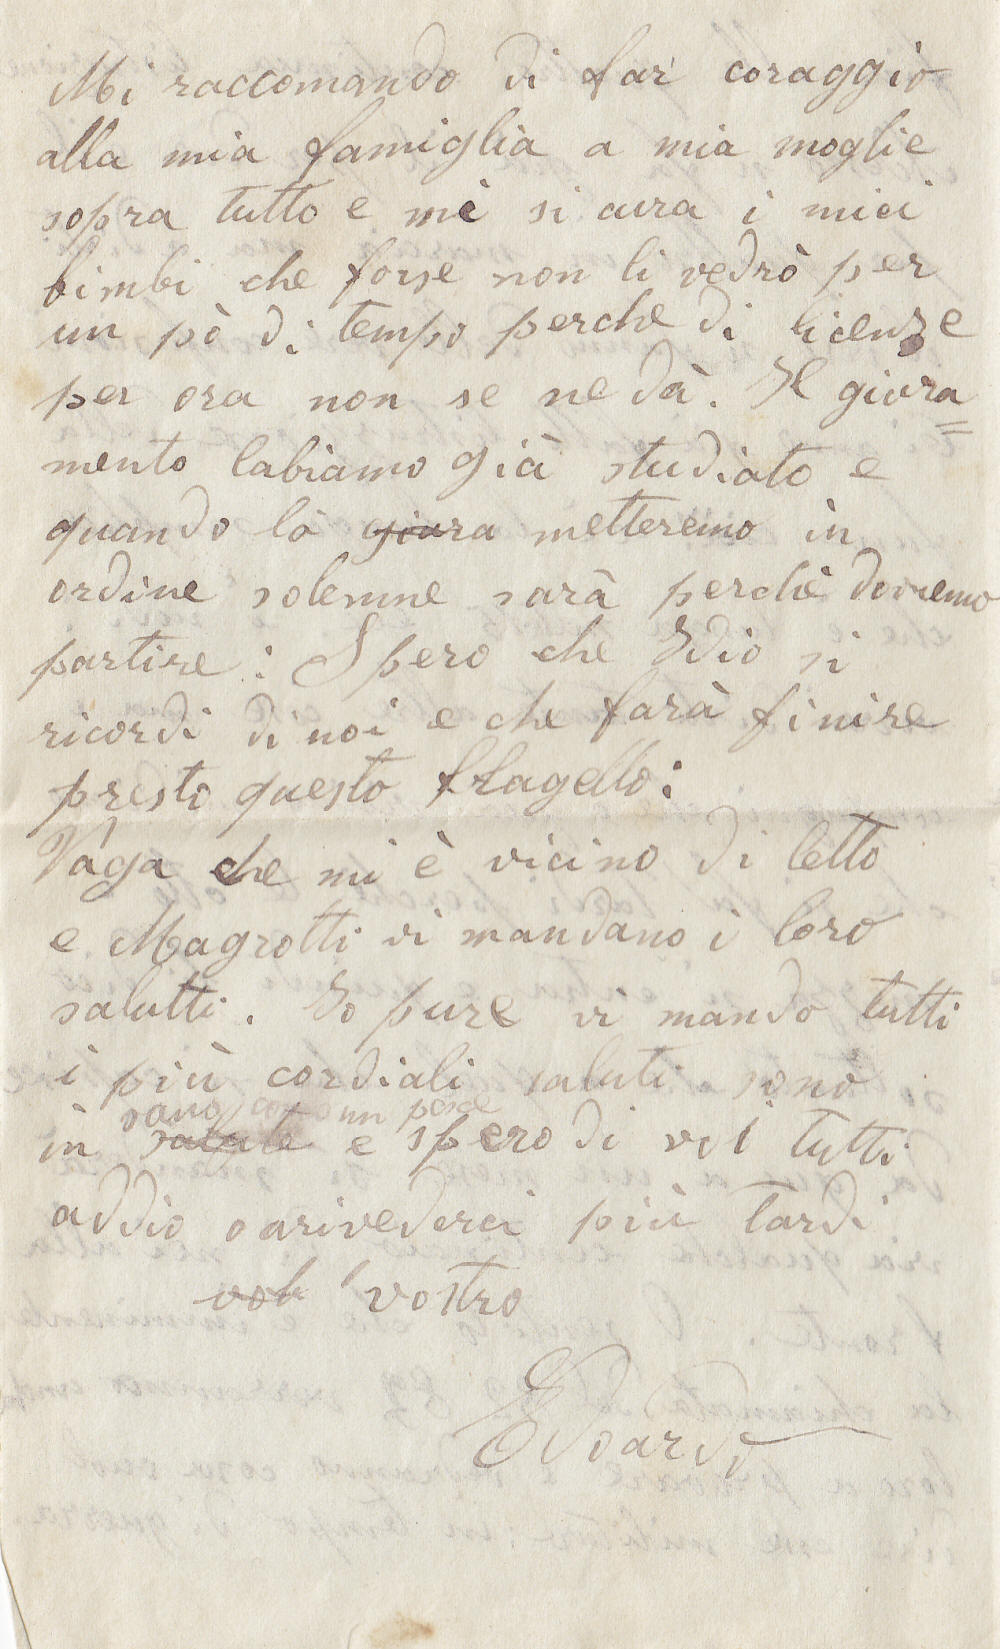 Mi raccomando di far coraggio
alla mia famiglia a mia moglie
sopra tutto e mi si cura i miei
bimbi che forse non li vedrò per
un pò di tempo perche di licenze
per ora non se ne dà. Il giura=
mento labiamo già studiato e
quando lò giura metteremo in
ordine solemne sarà perchè dovremo
partire: Spero che Iddio si
ricordi di noi e che farà finire
presto questo fragello:
Vaga che mi è vicino di letto
e Magrotti vi mandano i loro
salutti. Io pure vi mando tutti
i più cordiali saluti sono
sano come un pesce
in salute e spero di voi tutti
addio o arivederci più tardi
vostro
Edoardo